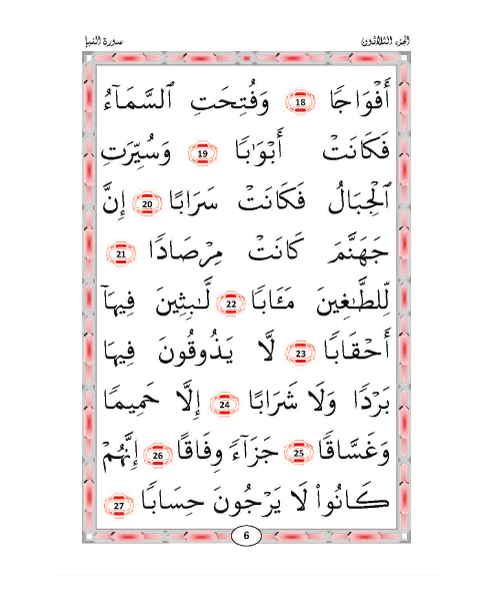 الجزء الثلاثون
سورة النبإ
أَفْوَاجًا 18 وَفُتِحَتِ ٱلسَّمَآءُ
فَكَانَتْ أَبْوَٰبًا 19 وَسُيِّرَتِ
ٱلْجِبَالُ فَكَانَتْ سَرَابًا 20 إِنَّ
جَهَنَّمَ كَانَتْ مِرْصَادًا 21
لِّلطَّٰغِينَ مَـَٔابًا 22 لَّٰبِثِينَ فِيهَآ
أَحْقَابًا 23 لَّا يَذُوقُونَ فِيهَا
بَرْدًا وَلَا شَرَابًا 24 إِلَّا حَمِيمًا
وَغَسَّاقًا 25 جَزَآءً وِفَاقًا 26 إِنَّهُمْ
كَانُوا۟ لَا يَرْجُونَ حِسَابًا 27
6